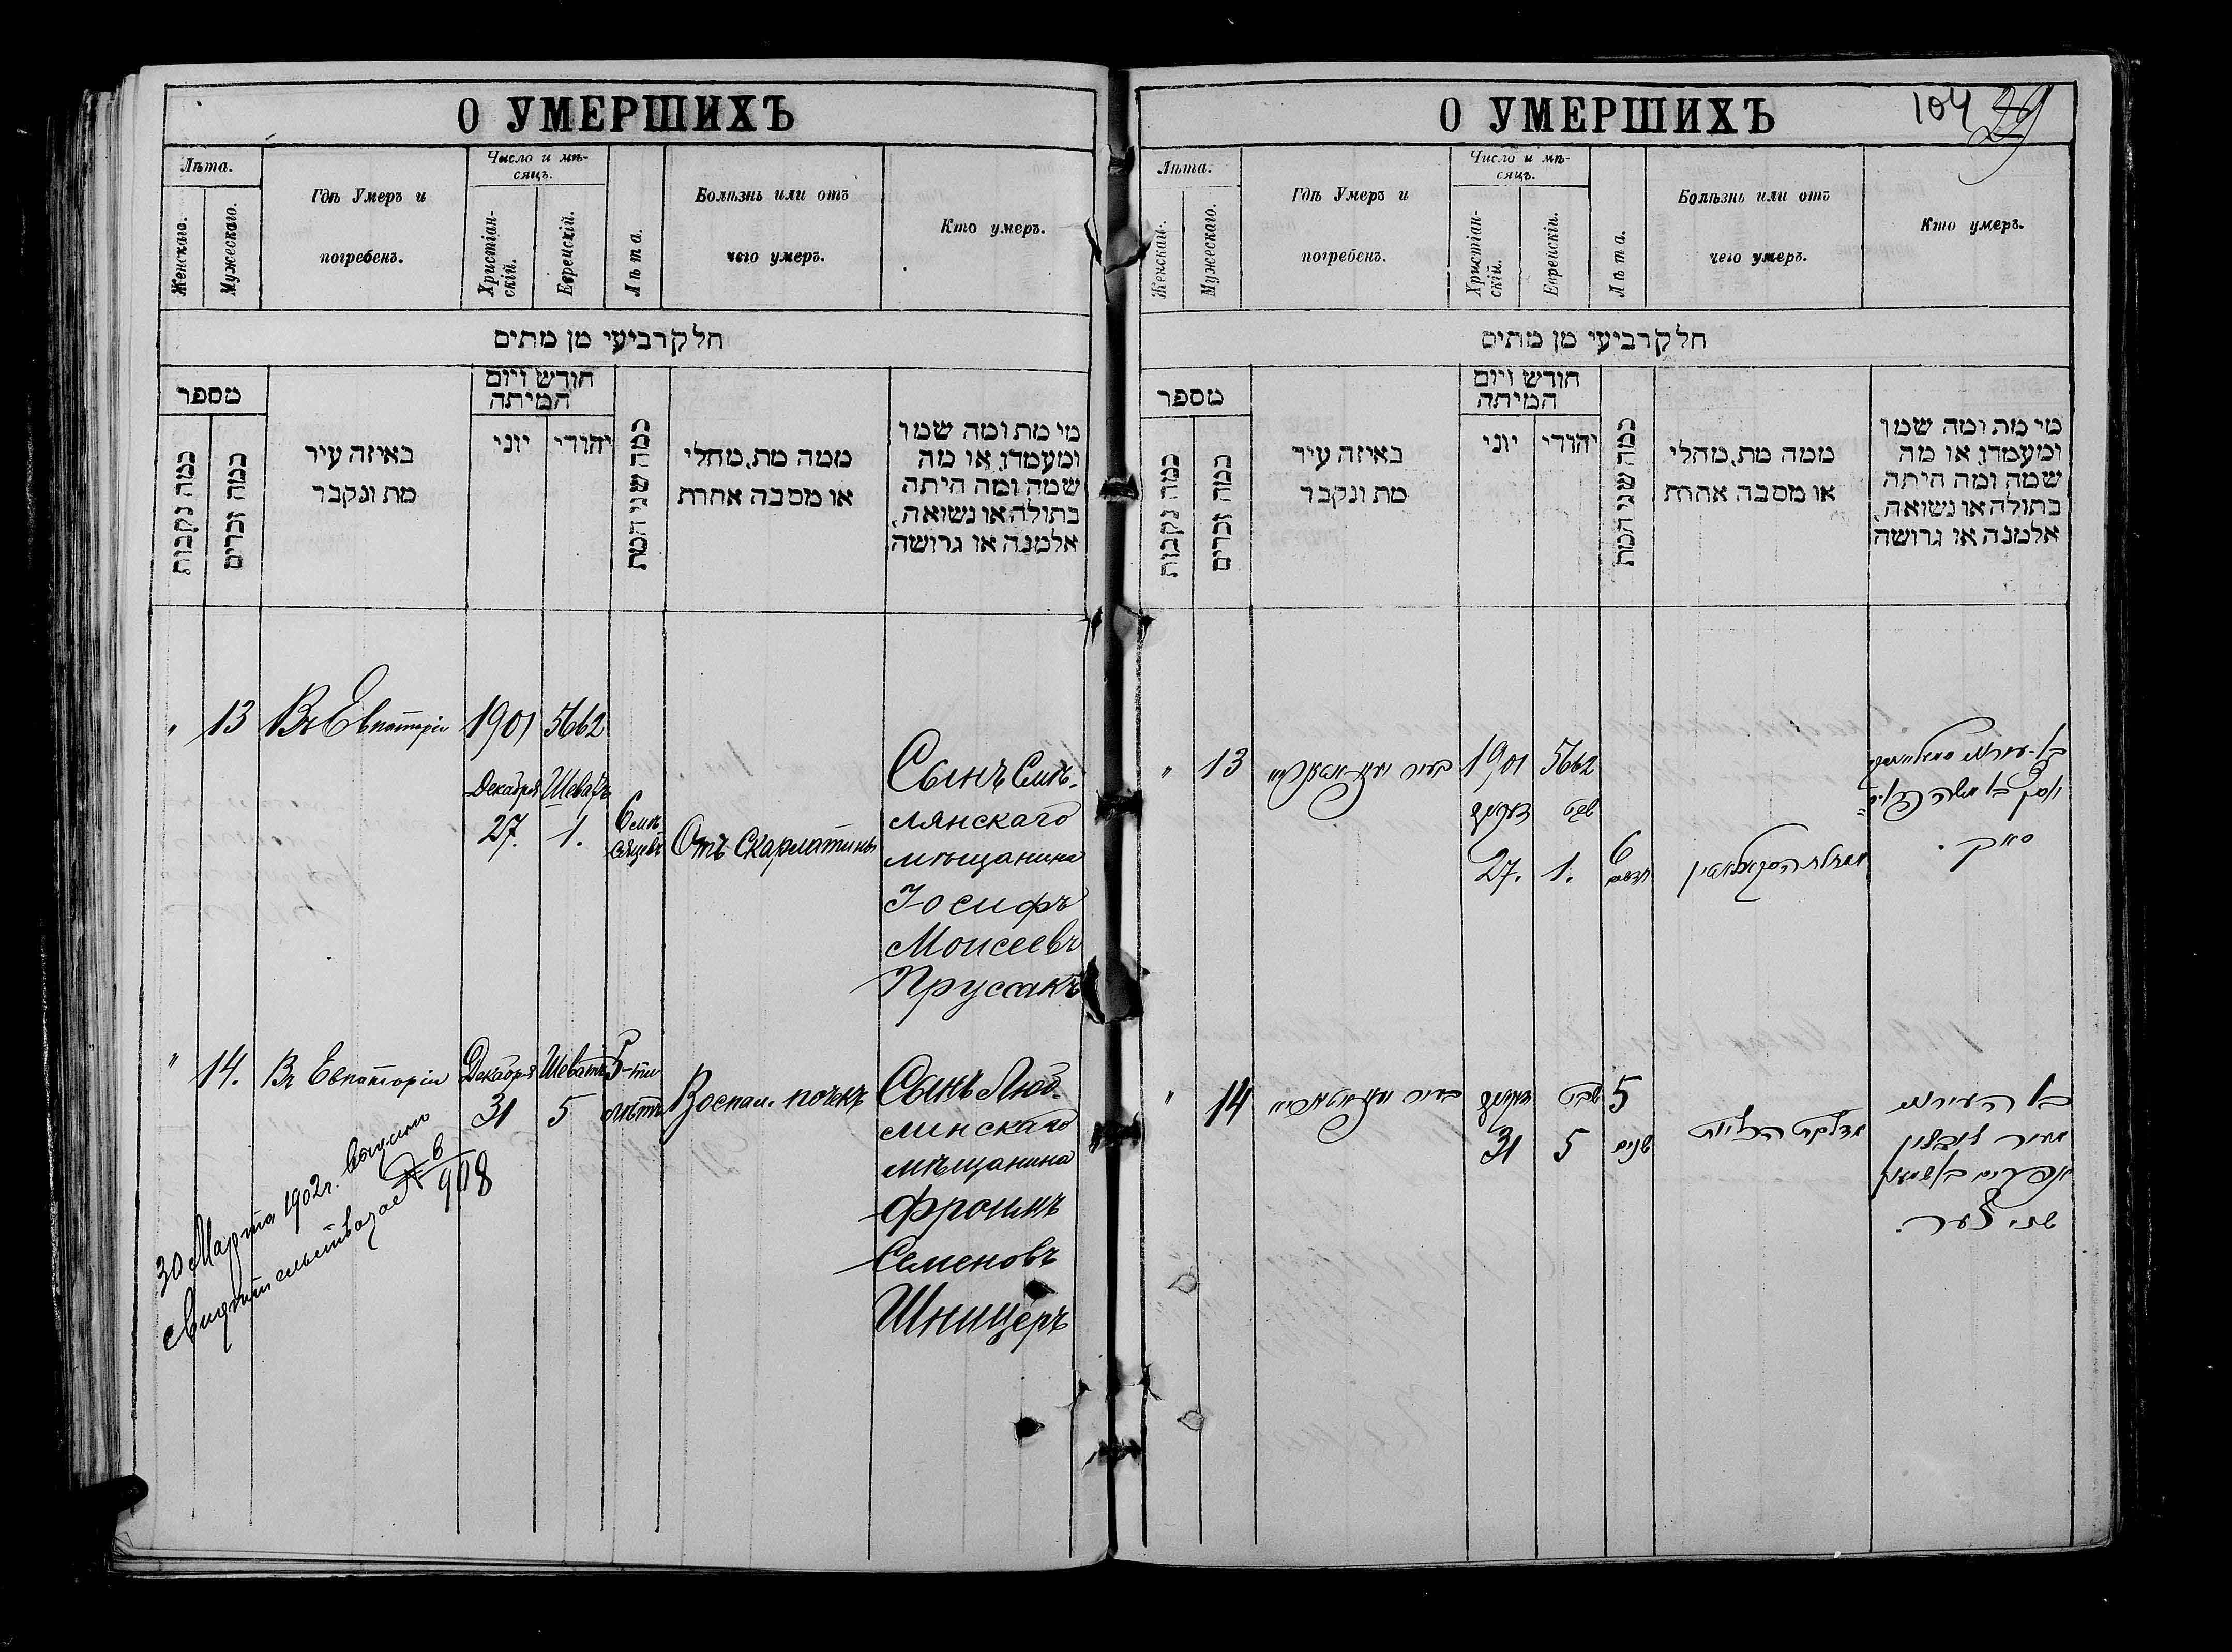 О УМЕРШИХЪ
Лѣта.
Женскаго.
Мужескаго.
Гдѣ Умеръ и
погребенъ.
Число и мѣ-
сяцъ.
Христіан-
скій.
Еврейскій.
Лѣта.
Болѣзнь или отъ
чего умеръ.
Кто умеръ.
חלק רביעי מן מתים
מספר
כמה נקבות
כמה זכרים
באיזה עיר
מת ונקבר
חודש ויום
המיתה
יוני
יהודי
כמה שני המת
ממה מת, מחלי
או מסבה אחרת
מי מת ומה שמו
ומעמדו, או מה
שמה ומה היתה
בתולה או נשואה,
אלמנה או גרושה
" 13 Въ Евпаторіи 1901 5662
Декабря Шеватъ
27. 1.
6 мѣ-
сяцевъ
Отъ Скарлатины
Сынъ Смѣ-
лянскаго
мѣщанина
Іосифъ
Моисеевъ
Прусакъ
" 14. Въ Евпаторіи Декабря Шеватъ 5-ти
31 5 лѣтъ
Воспал. почекъ
Сынъ Люб-
линскаго
мѣщанина
Фроимъ
Семеновъ
Шницеръ
30 Марта 1902 г.
Свидѣтельство за №
908
О УМЕРШИХЪ
104 29
Лѣта.
Женскаго.
Мужескаго.
Гдѣ Умеръ и
погребенъ.
Число и мѣ-
сяцъ.
Христіан-
скій.
Еврейскій.
Лѣта.
Болѣзнь или отъ
чего умеръ.
Кто умеръ.
חלק רביעי מן מתים
מספר
כמה נקבות
כמה זכרים
באיזה עיר
מת ונקבר
חודש ויום
המיתה
יוני
יהודי
כמה שני המת
ממה מת, מחלי
או מסבה אחרת
מי מת ומה שמו
ומעמדו, או מה
שמה ומה היתה
בתולה או נשואה,
אלמנה או גרושה
" 13 בעיר 1901 5662
שבט
27. 1.
6
חדשים
" 14 בעיר שבט 5
31 5 שנים
מדלקת הכליות